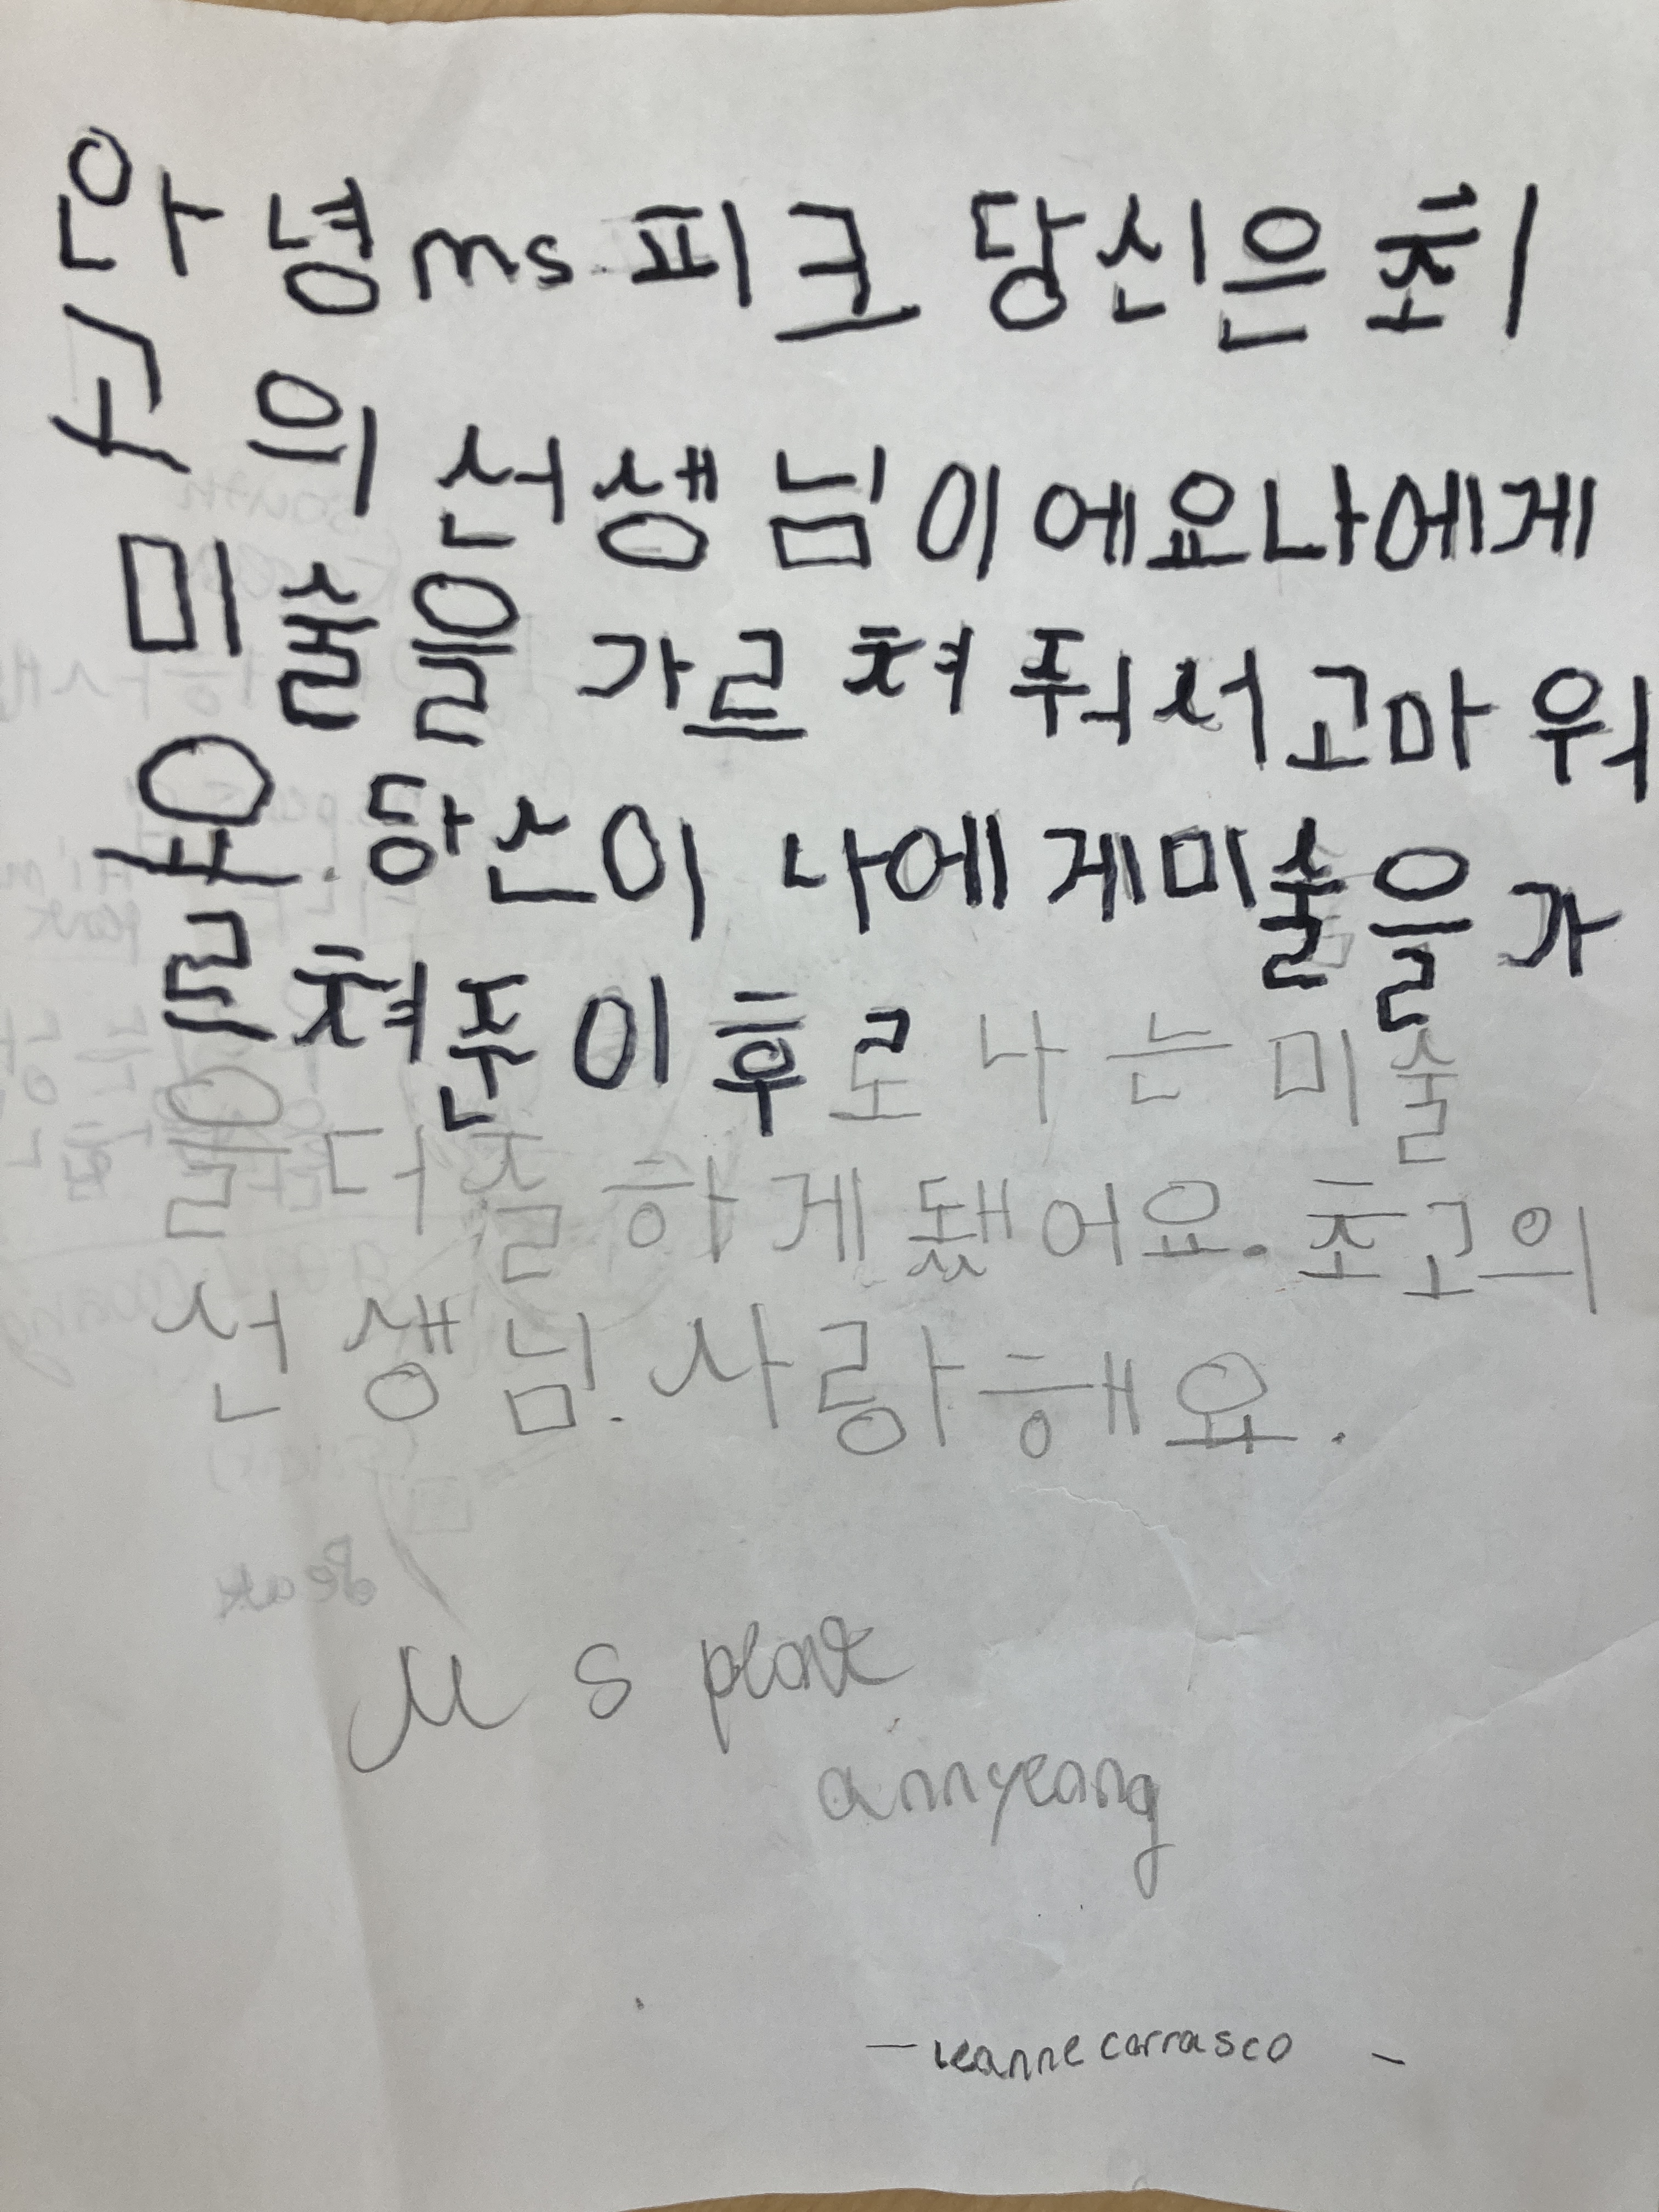 안녕 ms. 피크 당신은 최
고의 선생님이에요 나에게
미술을 가르쳐 줘서 고마워
요. 당신이 나에게 미술을 가
르쳐준 이후로 나는 미술
을 더 잘 하게 됐어요. 초고의
선생님. 사랑해요.
Ms
annyeong
- leanne carrasco -